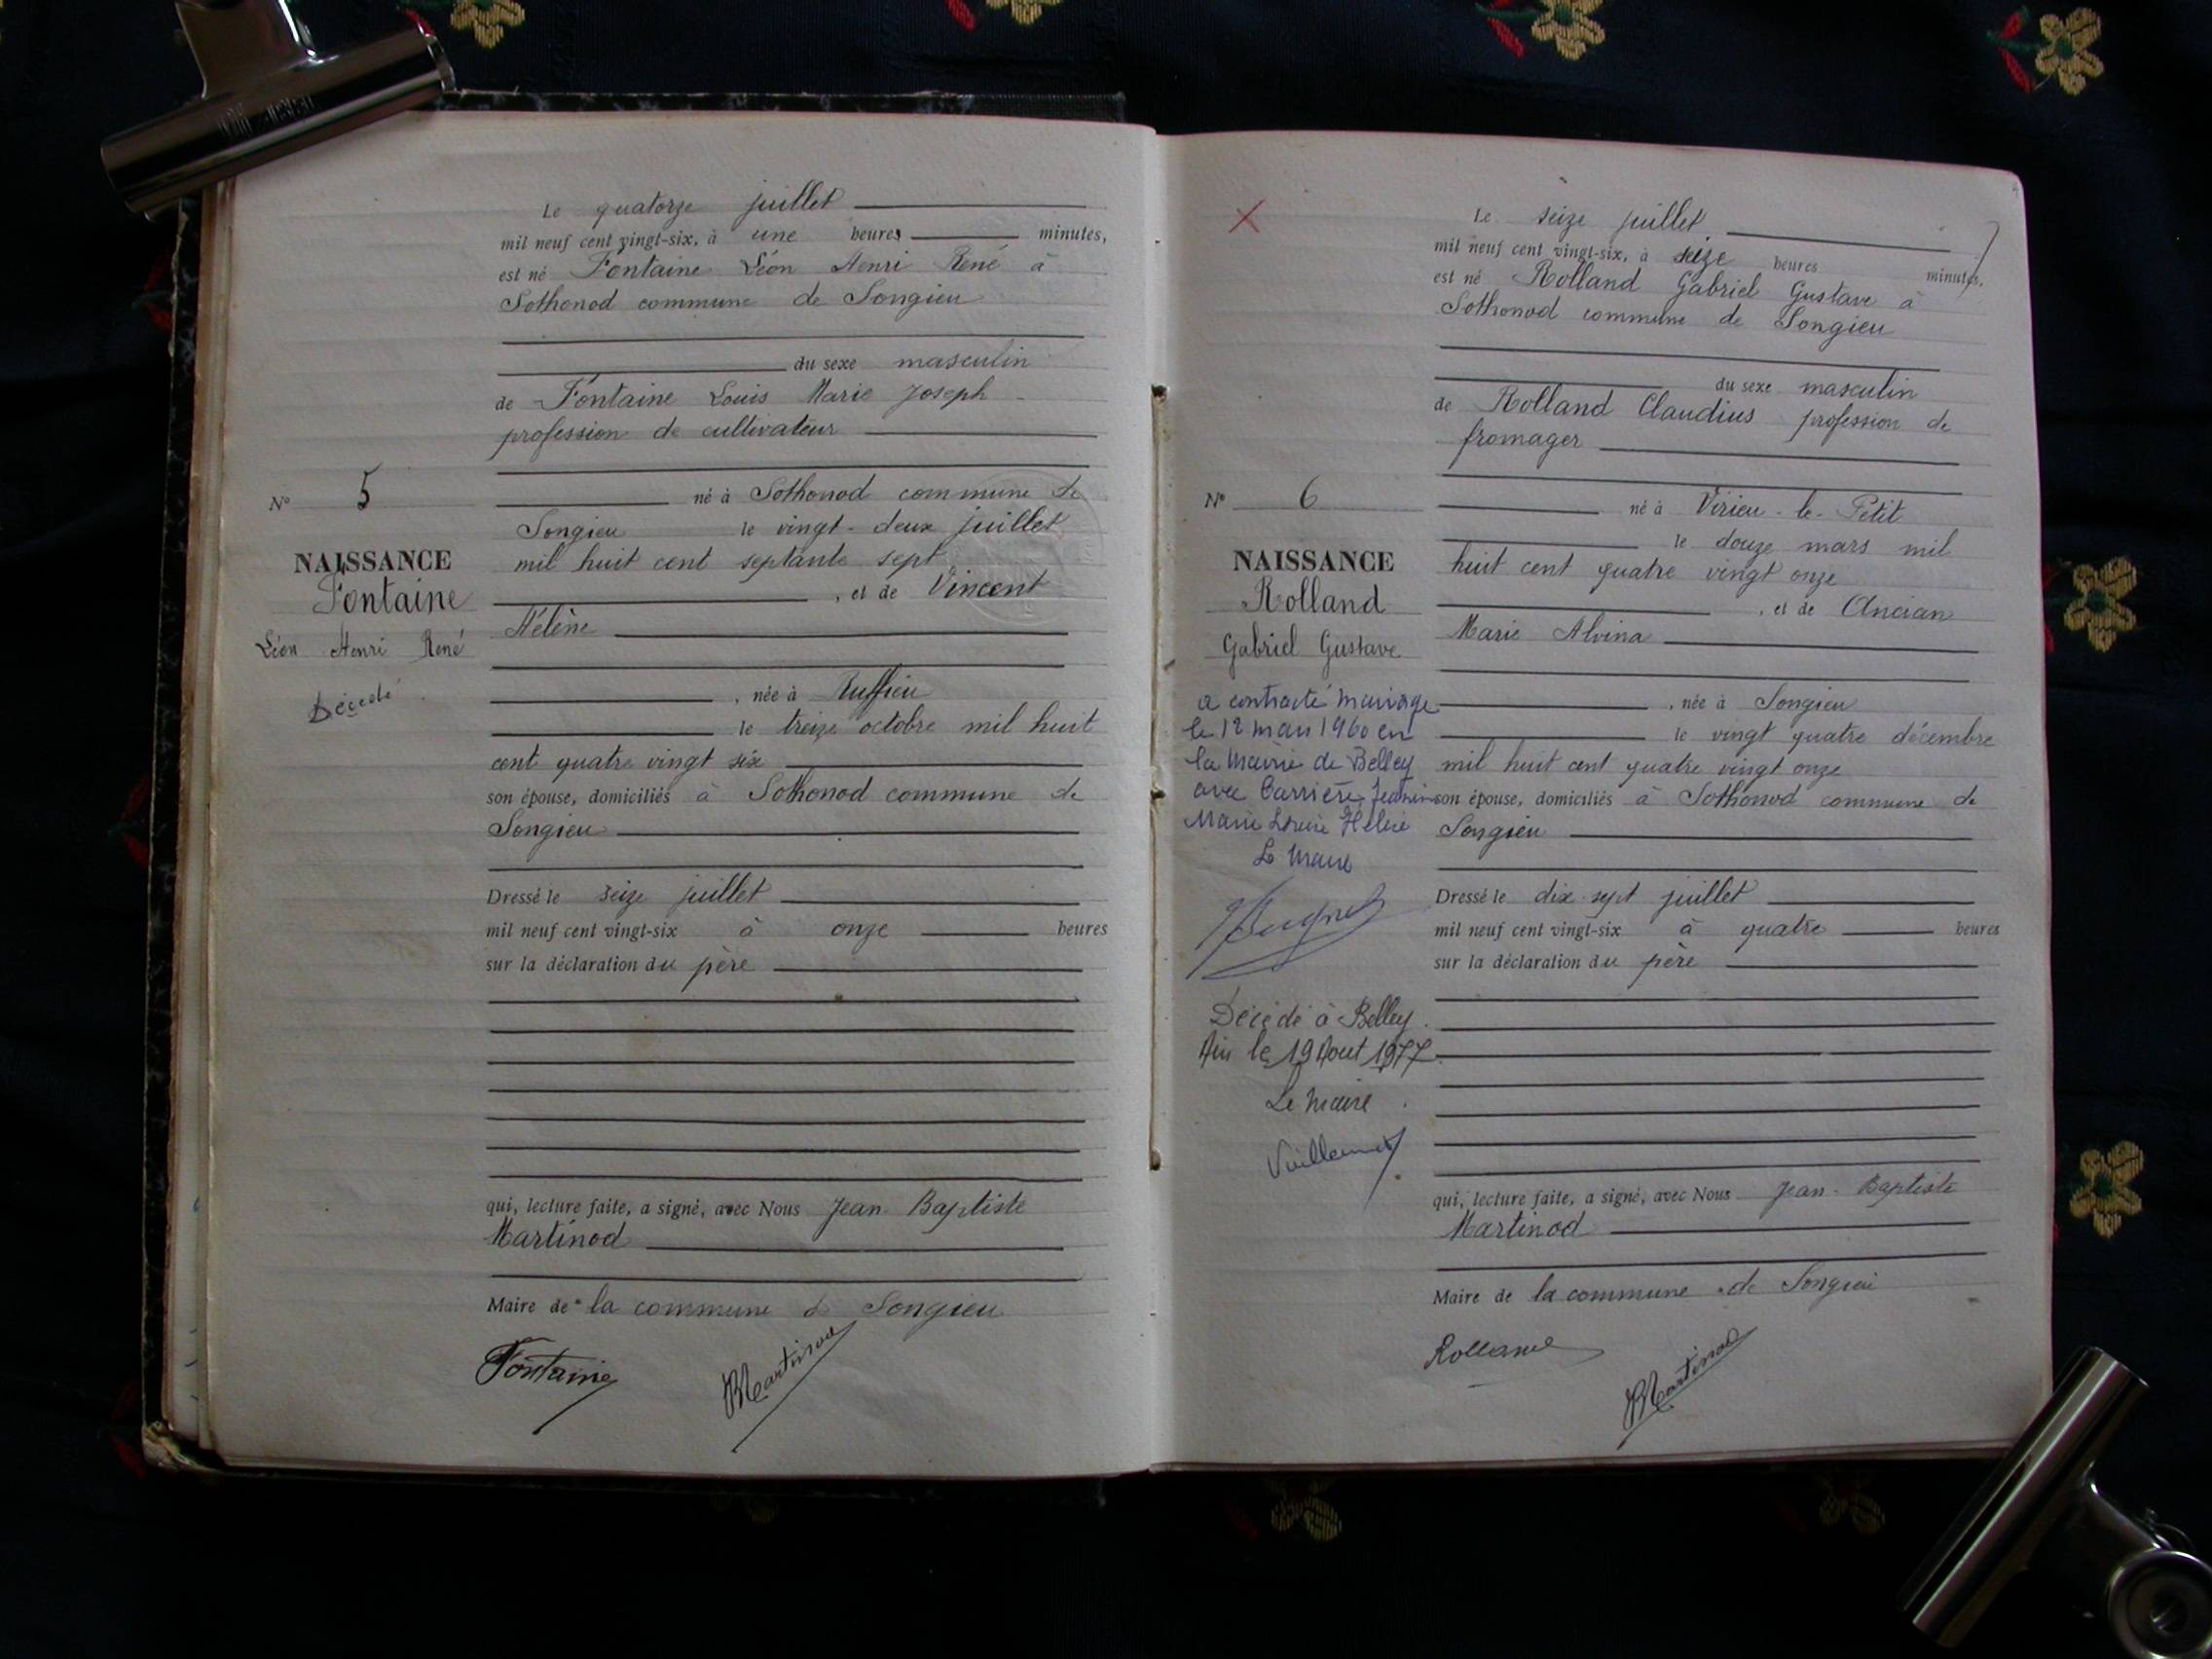 Le quatorze juillet
mil neuf cent vingt-six, à une heures minutes,
est né Fontaine Léon Henri René à
Sothonod commune de Songieu
du sexe masculin
de Fontaine Louis Marie Joseph
profession de cultivateur
né à Sothonod commune de
Songieu le vingt-deux juillet
mil huit cent septante sept
, et de Vincent
Hélène
, née à Ruffieu
le treize octobre mil huit
cent quatre vingt six
son épouse, domiciliés à Sothonod commune de
Songieu
Dressé le seize juillet
mil neuf cent vingt-six à onze heures
sur la déclaration du père
qui, lecture faite, a signé, avec Nous Jean Baptiste
Martinod
Maire de la commune de Songieu
Fontaine Martinod
N° 5
NAISSANCE
Fontaine
Léon Henri René
Décédé
Le seize juillet
mil neuf cent vingt-six, à seize heures minutes,
est né Rolland Gabriel Gustave à
Sothonod commune de Songieu
du sexe masculin
de Rolland Claudius profession de
fromager
né à Virieu-le-Petit
le douze mars mil
huit cent quatre vingt onze
, et de Ancian
Marie Alvina
, née à Songieu
le vingt quatre décembre
mil huit cent quatre vingt onze
son épouse, domiciliés à Sothonod commune de
Songieu
Dressé le dix sept juillet
mil neuf cent vingt-six à quatre heures
sur la déclaration du père
qui, lecture faite, a signé, avec Nous Jean-Baptiste
Martinod
Maire de la commune de Songieu
Rolland Martinod
N° 6
NAISSANCE
Rolland
Gabriel Gustave
a contracté mariage
le 12 mars 1960 en
la Mairie de Belley
avec Carrière
Marie Louise
Le Maire
Décédé à Belley
Ain le 19 Aout 1977.
Le Maire